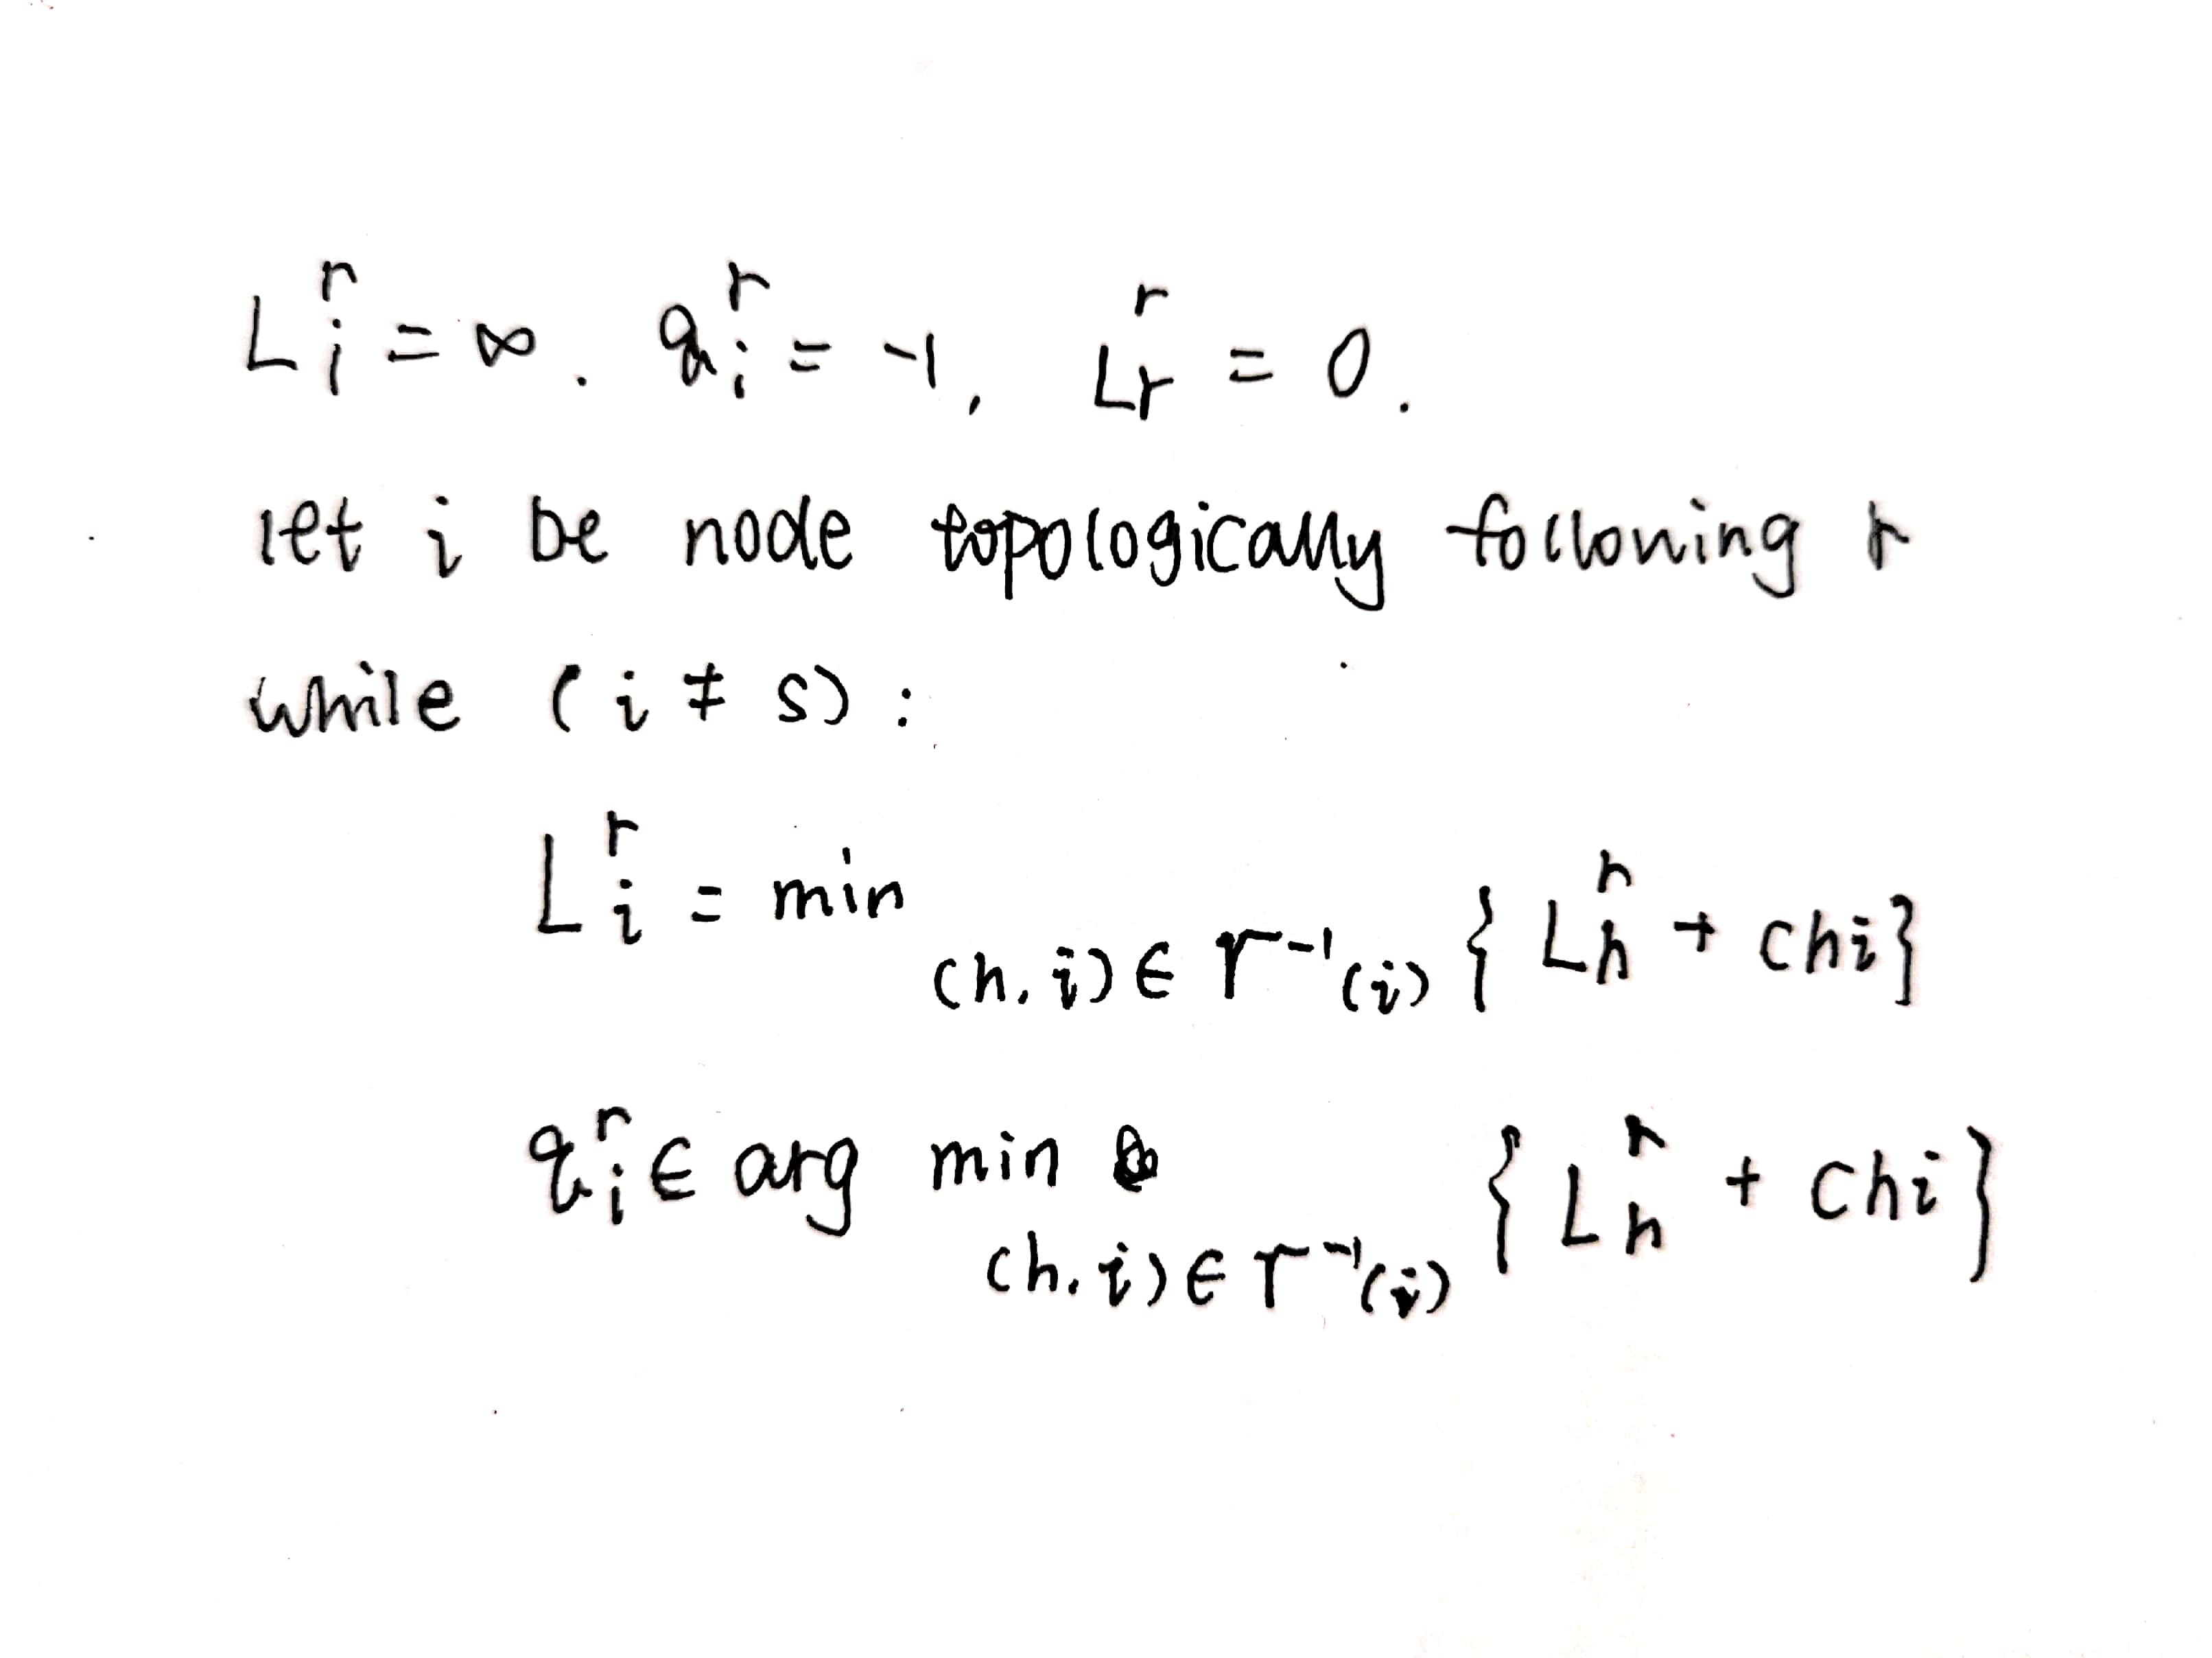 L_i^r = ∞. q_i^r = -1, L_r^r = 0.
let i be node topologically following r
while (i ≠ s):
L_i^r = min_{(h,i)∈Γ^{-1}(i)} {L_h^r + c_{hi}}
q_i^r ∈ arg min_{(h,i)∈Γ^{-1}(i)} {L_h^r + c_{hi}}